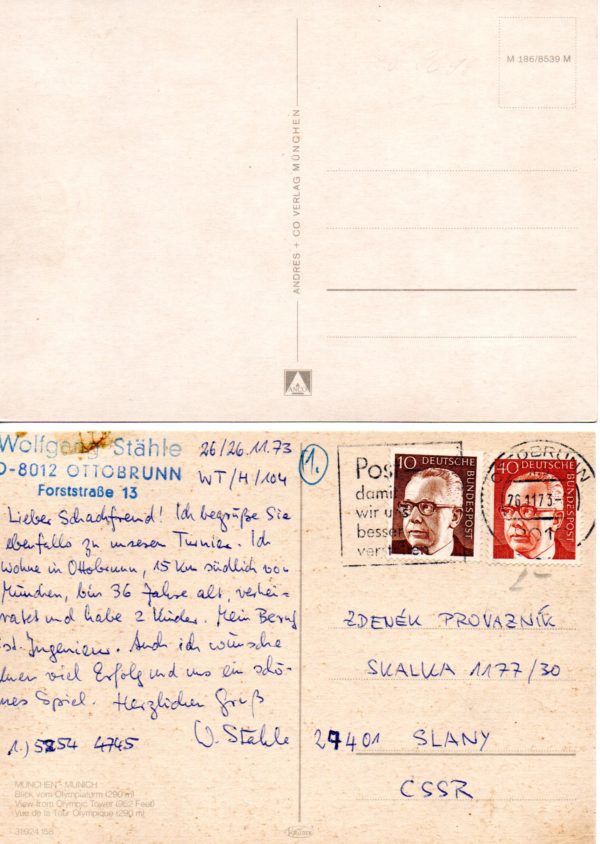 M 186/8539 M
ANDRES + CO VERLAG MÜNCHEN
Wolfgang Stähle
D-8012 OTTOBRUNN
Forststraße 13
26/26.11.73
WT/H/104
1.
Lieber Schachfreund! Ich begrüße Sie
ebenfalls zu unserem Turnier. Ich
wohne in Ottobrunn, 15 km südlich von
München, bin 36 Jahre alt, verhei-
ratet und habe 2 Kinder. Mein Beruf
ist Ingenieur. Auch ich wünsche
Ihnen viel Erfolg und uns ein schö-
nes Spiel. Herzlichen Gruß
W. Stähle
1.) 5254 4745
Pos
dami
wir u
besser
verst
10 DEUTSCHE BUNDESPOST
40 DEUTSCHE BUNDESPOST
OTTOBRUNN
26.11.73
ZDENĚK PROVAZNÍK
SKALKA 1177/30
27401 SLANY
ČSSR
MÜNCHEN - MUNICH
Blick vom Olympiaturm (290 m)
View from Olympic Tower (962 Feet)
Vue de la Tour Olympique (290 m)
31924 158